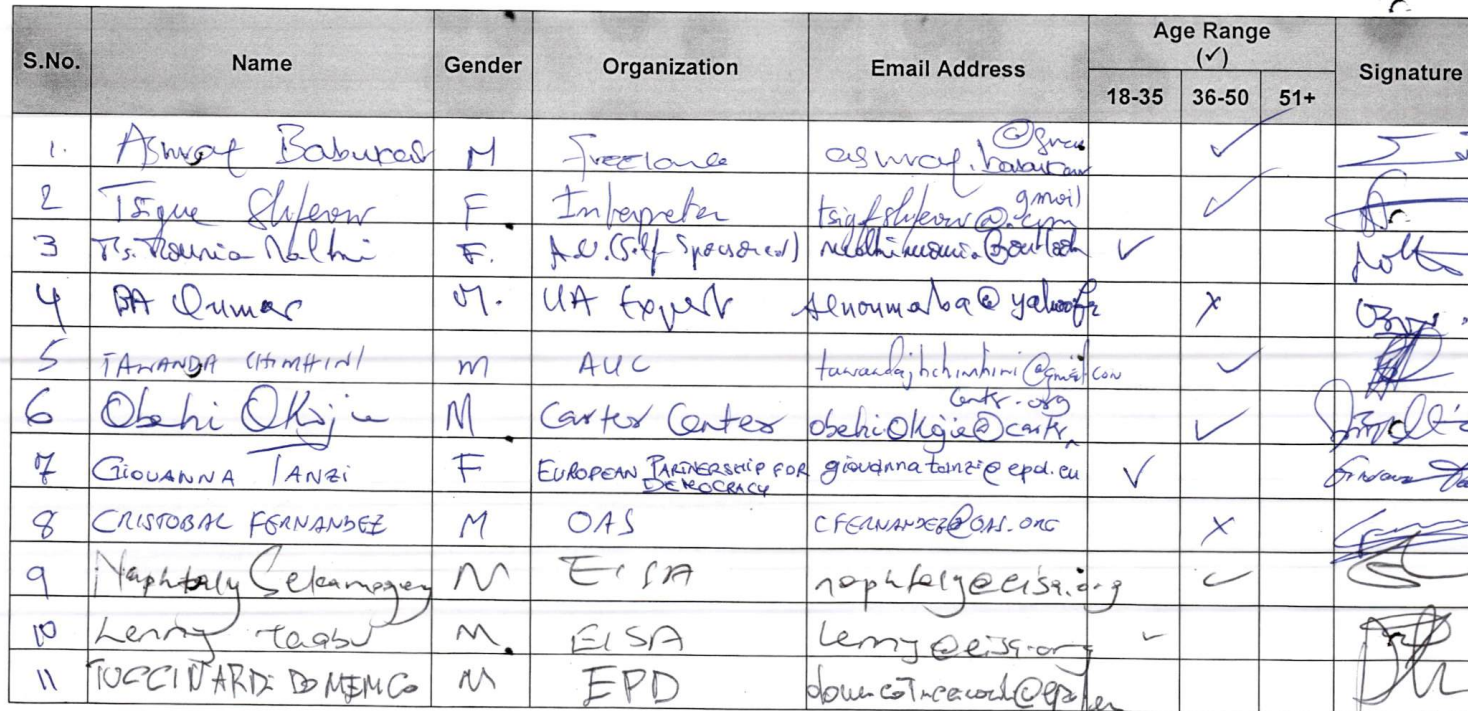 S.No. Name Gender Organization Email Address Age Range (✓) Signature
18-35 36-50 51+
1. Ashraf M Freelance ✓
2 Tsigue Shiferaw F Interpreter tsigfshiferaw@gmail.com ✓
3 Nalhi F. A.U. (Self Sponsored) ✓
4 BA Oumar M. UA Expert alnoumarba@yahoo.fr X
5 TAWANDA CHIMHINI M AUC tawandajhchimhini@gmail.com ✓
6 Obehi Okojie M Carter Center obehiOkojie@cartercenter.org ✓
7 GIOVANNA TANZI F EUROPEAN PARTNERSHIP FOR DEMOCRACY giovannatanzi@epd.eu ✓
8 CRISTOBAL FERNANDEZ M OAS CFERNANDEZ@OAS.ORG X
9 Naphtaly M EISA naphtaly@eisa.org ✓
10 Lenny Taabu M EISA lenny@eisa.org ✓
11 TUCCINARDI DOMENICO M EPD